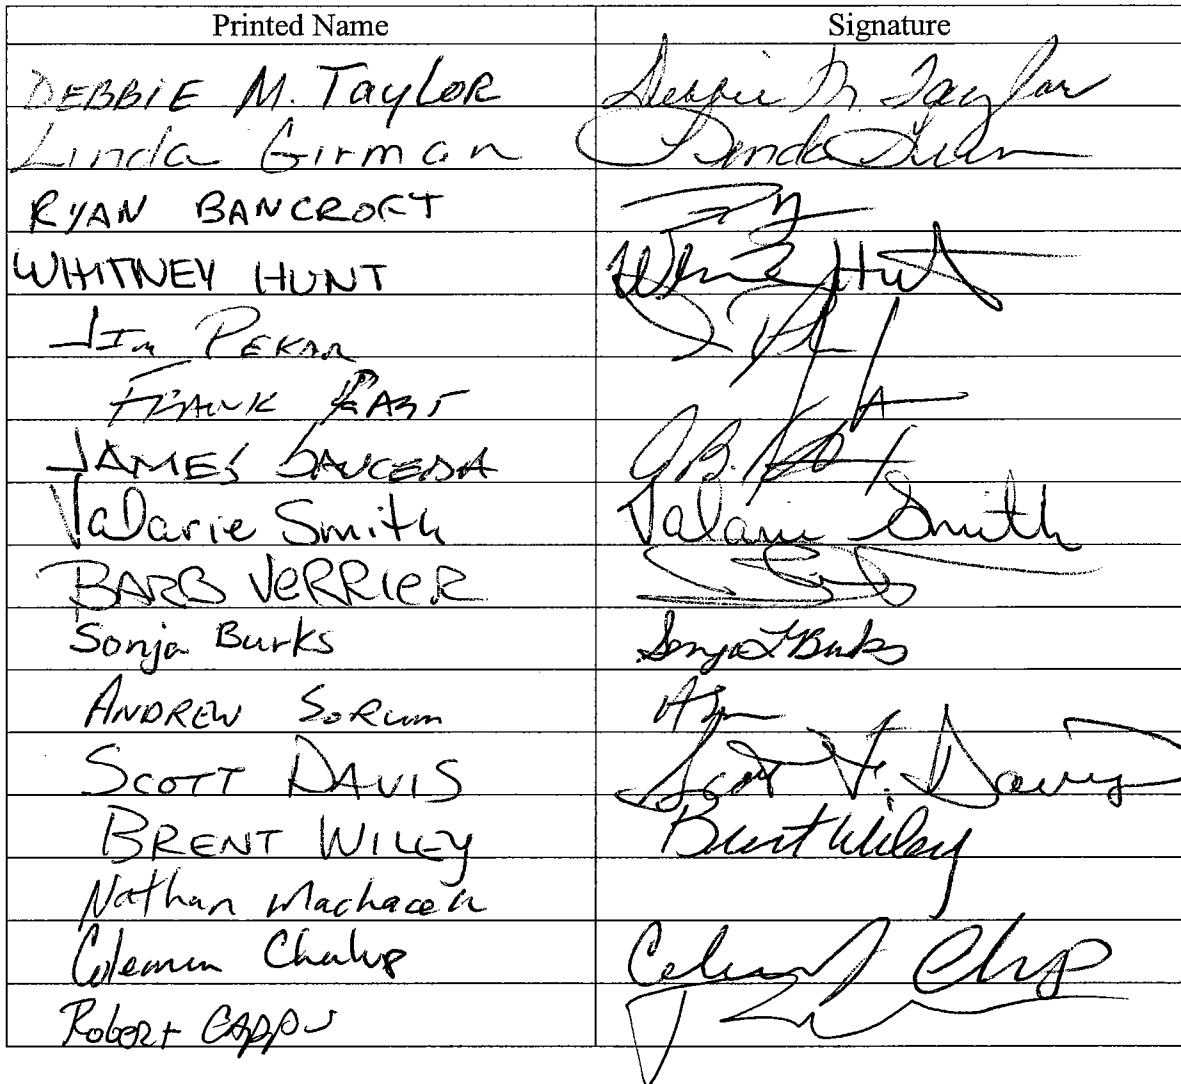 Printed Name Signature
DEBBIE M. TayLOR Debbie M. Taylor
Linda Girman Linda
RYAN BANCROFT
WHITNEY HUNT Hunt
JIm PEKAR
FRANK
JAMES SAUCEDA J.B.
ValDarie Smith Valarie Smith
BARB VeRRieR
Sonja Burks Sonja L Burks
ANDREW SORum
SCOTT DAVIS Scott V. Davis
BRENT WILEY Brent Wiley
Nathan Machacek
Coleman Chalup
Robert CAppS